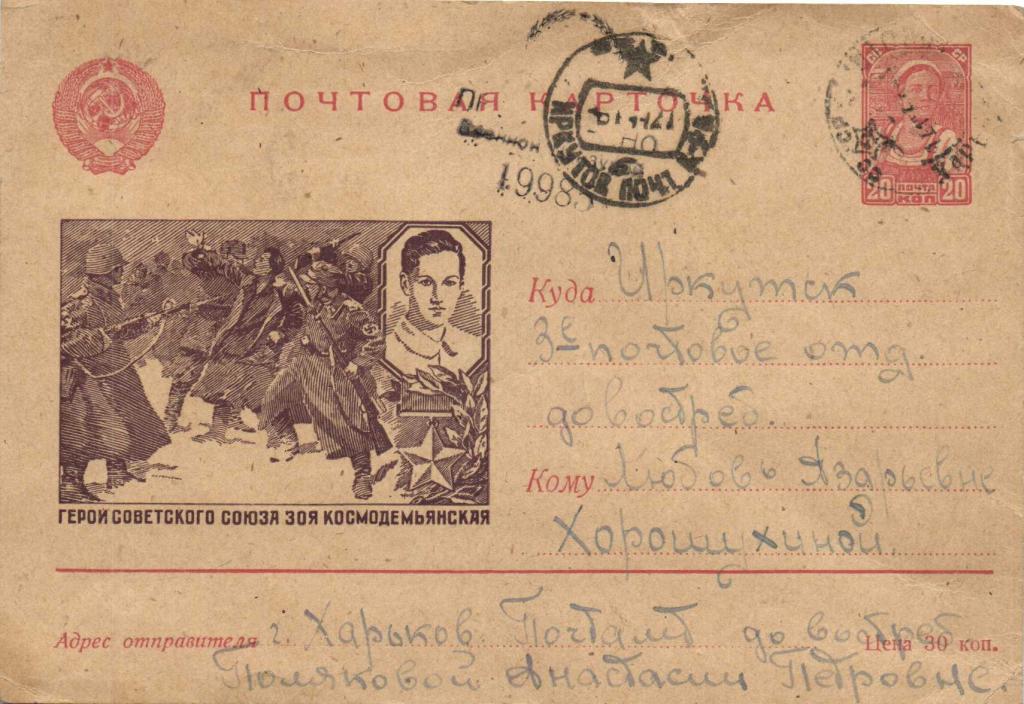 ПОЧТОВАЯ КАРТОЧКА
ИРКУТСК ПОЧТ
19985
20 ПОЧТА 20
КОП
Куда Иркутск
3е почтовое отд.
до востреб.
Кому Любовь Азарьевне
Хорошухиной.
ГЕРОЙ СОВЕТСКОГО СОЮЗА ЗОЯ КОСМОДЕМЬЯНСКАЯ
Адрес отправителя г. Харьков Почтамт до востреб. Цена 30 коп.
Поляковой Анастасии Петровне.